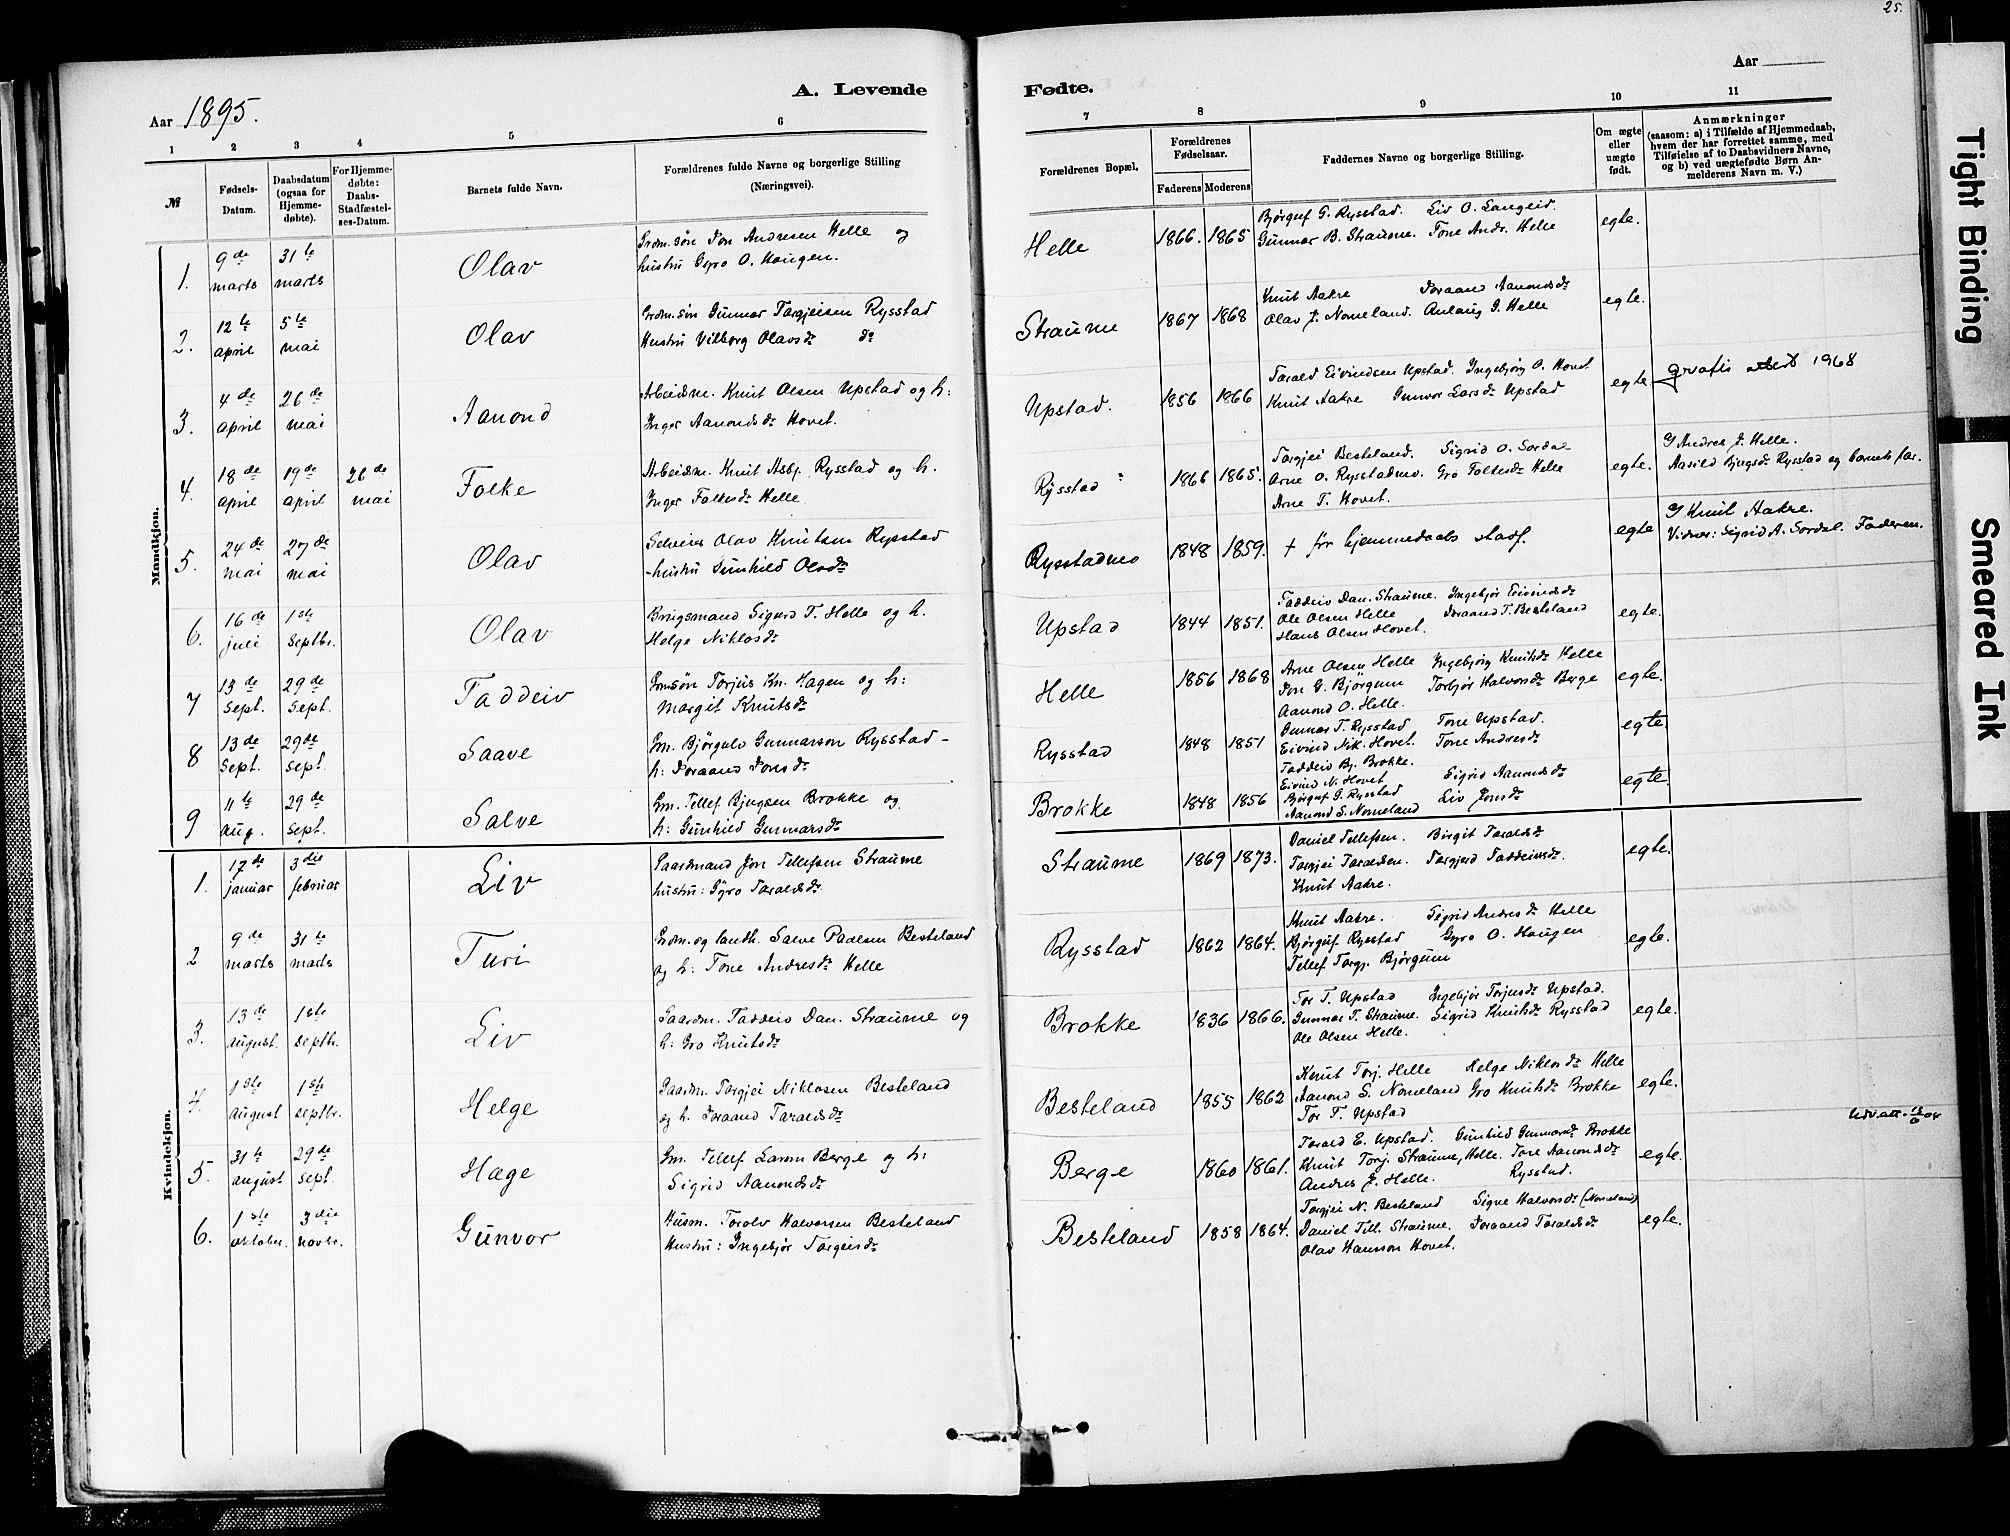 25.
Aar 1895.
A. Levende
Fødte.
Aar
1 2 3 4 5 6
7 8 9 10 11
№
Fødsels-
Datum.
Daabsdatum
(ogsaa for
Hjemme-
døbte).
For Hjemme-
døbte:
Daabs-
Stadfæstel-
ses-Datum.
Barnets fulde Navn.
Forældrenes fulde Navne og borgerlige Stilling
(Næringsvei).
Forældrenes Bopæl.
Forældrenes
Fødselsaar.
Faderens Moderens
Faddernes Navne og borgerlige Stilling.
Om ægte
eller
uægte
født.
Anmærkninger
(saasom: a) i Tilfælde af Hjemmedaab,
hvem der har forrettet samme, med
Tilføielse af to Daabsvidners Navne,
og b) ved uægtefødte Børn An-
melderens Navn m. V.)
Mandkjøn.
1. 9de marts 31te marts Olav
Grdm.søn Jon Andresen Helle og
hustru Gyro O. Haugen.
Helle 1866. 1865
Bjørguf G. Rysstad. Liv O. Langeid.
Gunnar B. Straume. Tone Andr. Helle
egte.
2. 12te april 5te mai Olav
Grdm.søn Gunnar Torgjeisen Rysstad
Hustru Vilborg Olavsdr do
Straume 1867 1868
Knut Aakre Joraand Aanondsdr
Olav J. Nomeland. Aulaug G. Helle
egte.
3. 4de april 26de mai Aanond
Arbeidsm. Knut Olsen Upstad og h:
Inger Aanondsdr Hovet.
Upstad. 1856 1866
Tarald Eivindsen Upstad. Ingebjørg O. Hovet
Knut Aakre Gunvor Larsdr Upstad
egte
gratis attest 1968
4. 18de april 19de april 26de mai Folke
Arbeidsm. Knut Asbj. Rysstad og h.
Inger Folkesdr Helle
Rysstad 1866 1865.
Torgjei Besteland. Sigrid O. Sordal
Arne O. Rysstadmo. Gro Folkesdr Helle
Arne T. Hovet.
egte.
Andres J. Helle.
Aasild Bjugsdr Rysstad og barnets far.
5. 24de mai 27de mai Olav
Olav Knutsen Rysstad
hustru Gunhild Olsdr
Rysstadmo 1848 1859.
† før hjemmedaabs stadf.
egte
Knut Aakre.
Vidner: Sigrid A. Sordal. Faderen.
6. 16de juli 1ste Septbr. Olav
Brugsmand Sigurd T. Helle og h.
Helge Niklosdr
Upstad 1844 1851.
Taddeiv Dan. Straume. Ingebjør Eivindsdr
Ole Olsen Helle Joraand T. Besteland
Hans Olsen Hovet.
egte.
7 13de Sept. 29de Sept. Taddeiv
Gmsøn Torjus Kn. Hagen og h:
Margit Knutsdr
Helle 1856 1868
Arne Olsen Helle Ingebjørg Knutsdr Helle
Jon G. Bjørgum Torbjør Halvorsdr Berge
Aanond O. Helle.
egte.
8 13de Sept. 29de sept. Saave
Gm. Bjørgulv Gunnarson Rysstad -
h: Joraand Jonsdr
Rysstad 1848 1851
Gunnar T. Rysstad Tone Upstad.
Eivind Nik. Hovet. Tone Andresdr
Taddeiv Bj. Brokke.
egte
9 11te aug. 29de sept. Salve
Gm. Tellef Bjugsen Brokke og
h: Gunhild Gunnarsdr
Brokke 1848 1856
Eivind N. Hovet Sigrid Aanondsdr
Bjørguf G. Rysstad Liv Jonsdr
Aanond S. Nomeland
egte.
Kvindekjøn.
1. 17de januar 3die februar Liv
Gaardmand Jon Tellefsen Straume
hustru: Gyro Taraldsdr
Straume 1869 1873.
Daniel Tellefsen. Birgit Taraldsdr
Torgjei Taraldsen. Torgjerd Taddeivsdr.
Knut Aakre.
egte.
2 9de marts 31te marts Turi
Grdm. og landh. Salve Paalsen Besteland
og h: Tone Andresdr Helle
Rysstad 1862 1864.
Knut Aakre. Sigrid Andresdr Helle
Bjørguf Rysstad Gyro O. Haugen
Tellef Torgj. Bjørgum
egte.
3. 13de august. 1ste septbr. Liv
Gaardm. Taddeiv Dan. Straume og
h: Gro Knutsdr
Brokke 1836 1866.
Tor T. Upstad Ingebjør Torjusdr Upstad.
Gunnar T. Straume. Sigrid Knutsdr Rysstad
Ole Olsen Helle.
egte.
4. 1ste august 1ste septbr. Helge
Gaardm. Torgjei Niklosen Besteland
og h. Joraand Taraldsdr
Besteland 1855 1862
Knut Torj. Helle Helge Niklosdr Helle
Aanond S. Nomeland Gro Knutsdr Brokke
Tor T. Upstad
egte.
5. 31te august 29de sept. Hæge
Gm. Tellef Larsen Berge og h:
Sigrid Aanondsdr
Berge 1860 1861.
Tarald E. Upstad. Gunhild Gunnarsdr Brokke
Knut Torj. Straume, Helle. Tone Aanondsdr
Andres J. Helle. Rysstad.
egte.
6. 1ste oktober. 3die novbr. Gunvor
Husm. Torolv Halvorsen Besteland
Hustru: Ingebjør Torgeisdr
Besteland 1858 1864.
Torgjei N. Besteland Signe Halvorsdr (Nomeland)
Daniel Tell. Straume. Joraand Taraldsdr
Olav Hansson Hovet.
egte.
Tight Binding
Smeared Ink